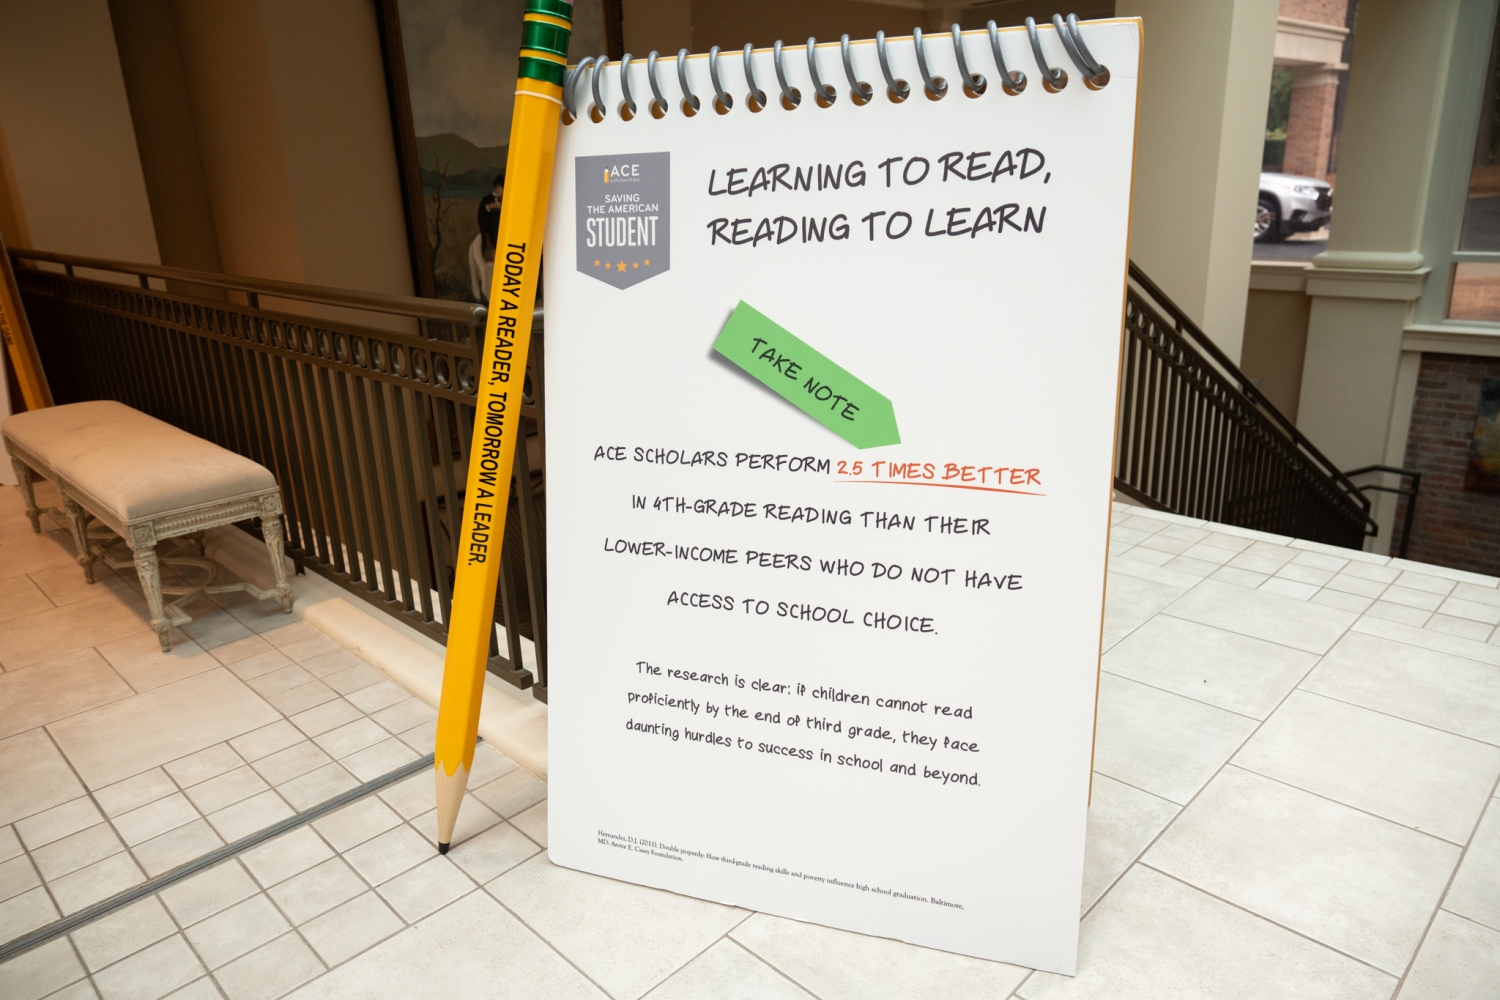 ACE
scholarships
SAVING
THE AMERICAN
STUDENT
LEARNING TO READ,
READING TO LEARN
TODAY A READER, TOMORROW A LEADER.
TAKE NOTE
ACE SCHOLARS PERFORM 2.5 TIMES BETTER
IN 4TH-GRADE READING THAN THEIR
LOWER-INCOME PEERS WHO DO NOT HAVE
ACCESS TO SCHOOL CHOICE.
The research is clear: if children cannot read
proficiently by the end of third grade, they face
daunting hurdles to success in school and beyond.
Hernandez, D.J. (2011). Double jeopardy: How third-grade reading skills and poverty influence high school graduation. Baltimore,
MD: Annie E. Casey Foundation.